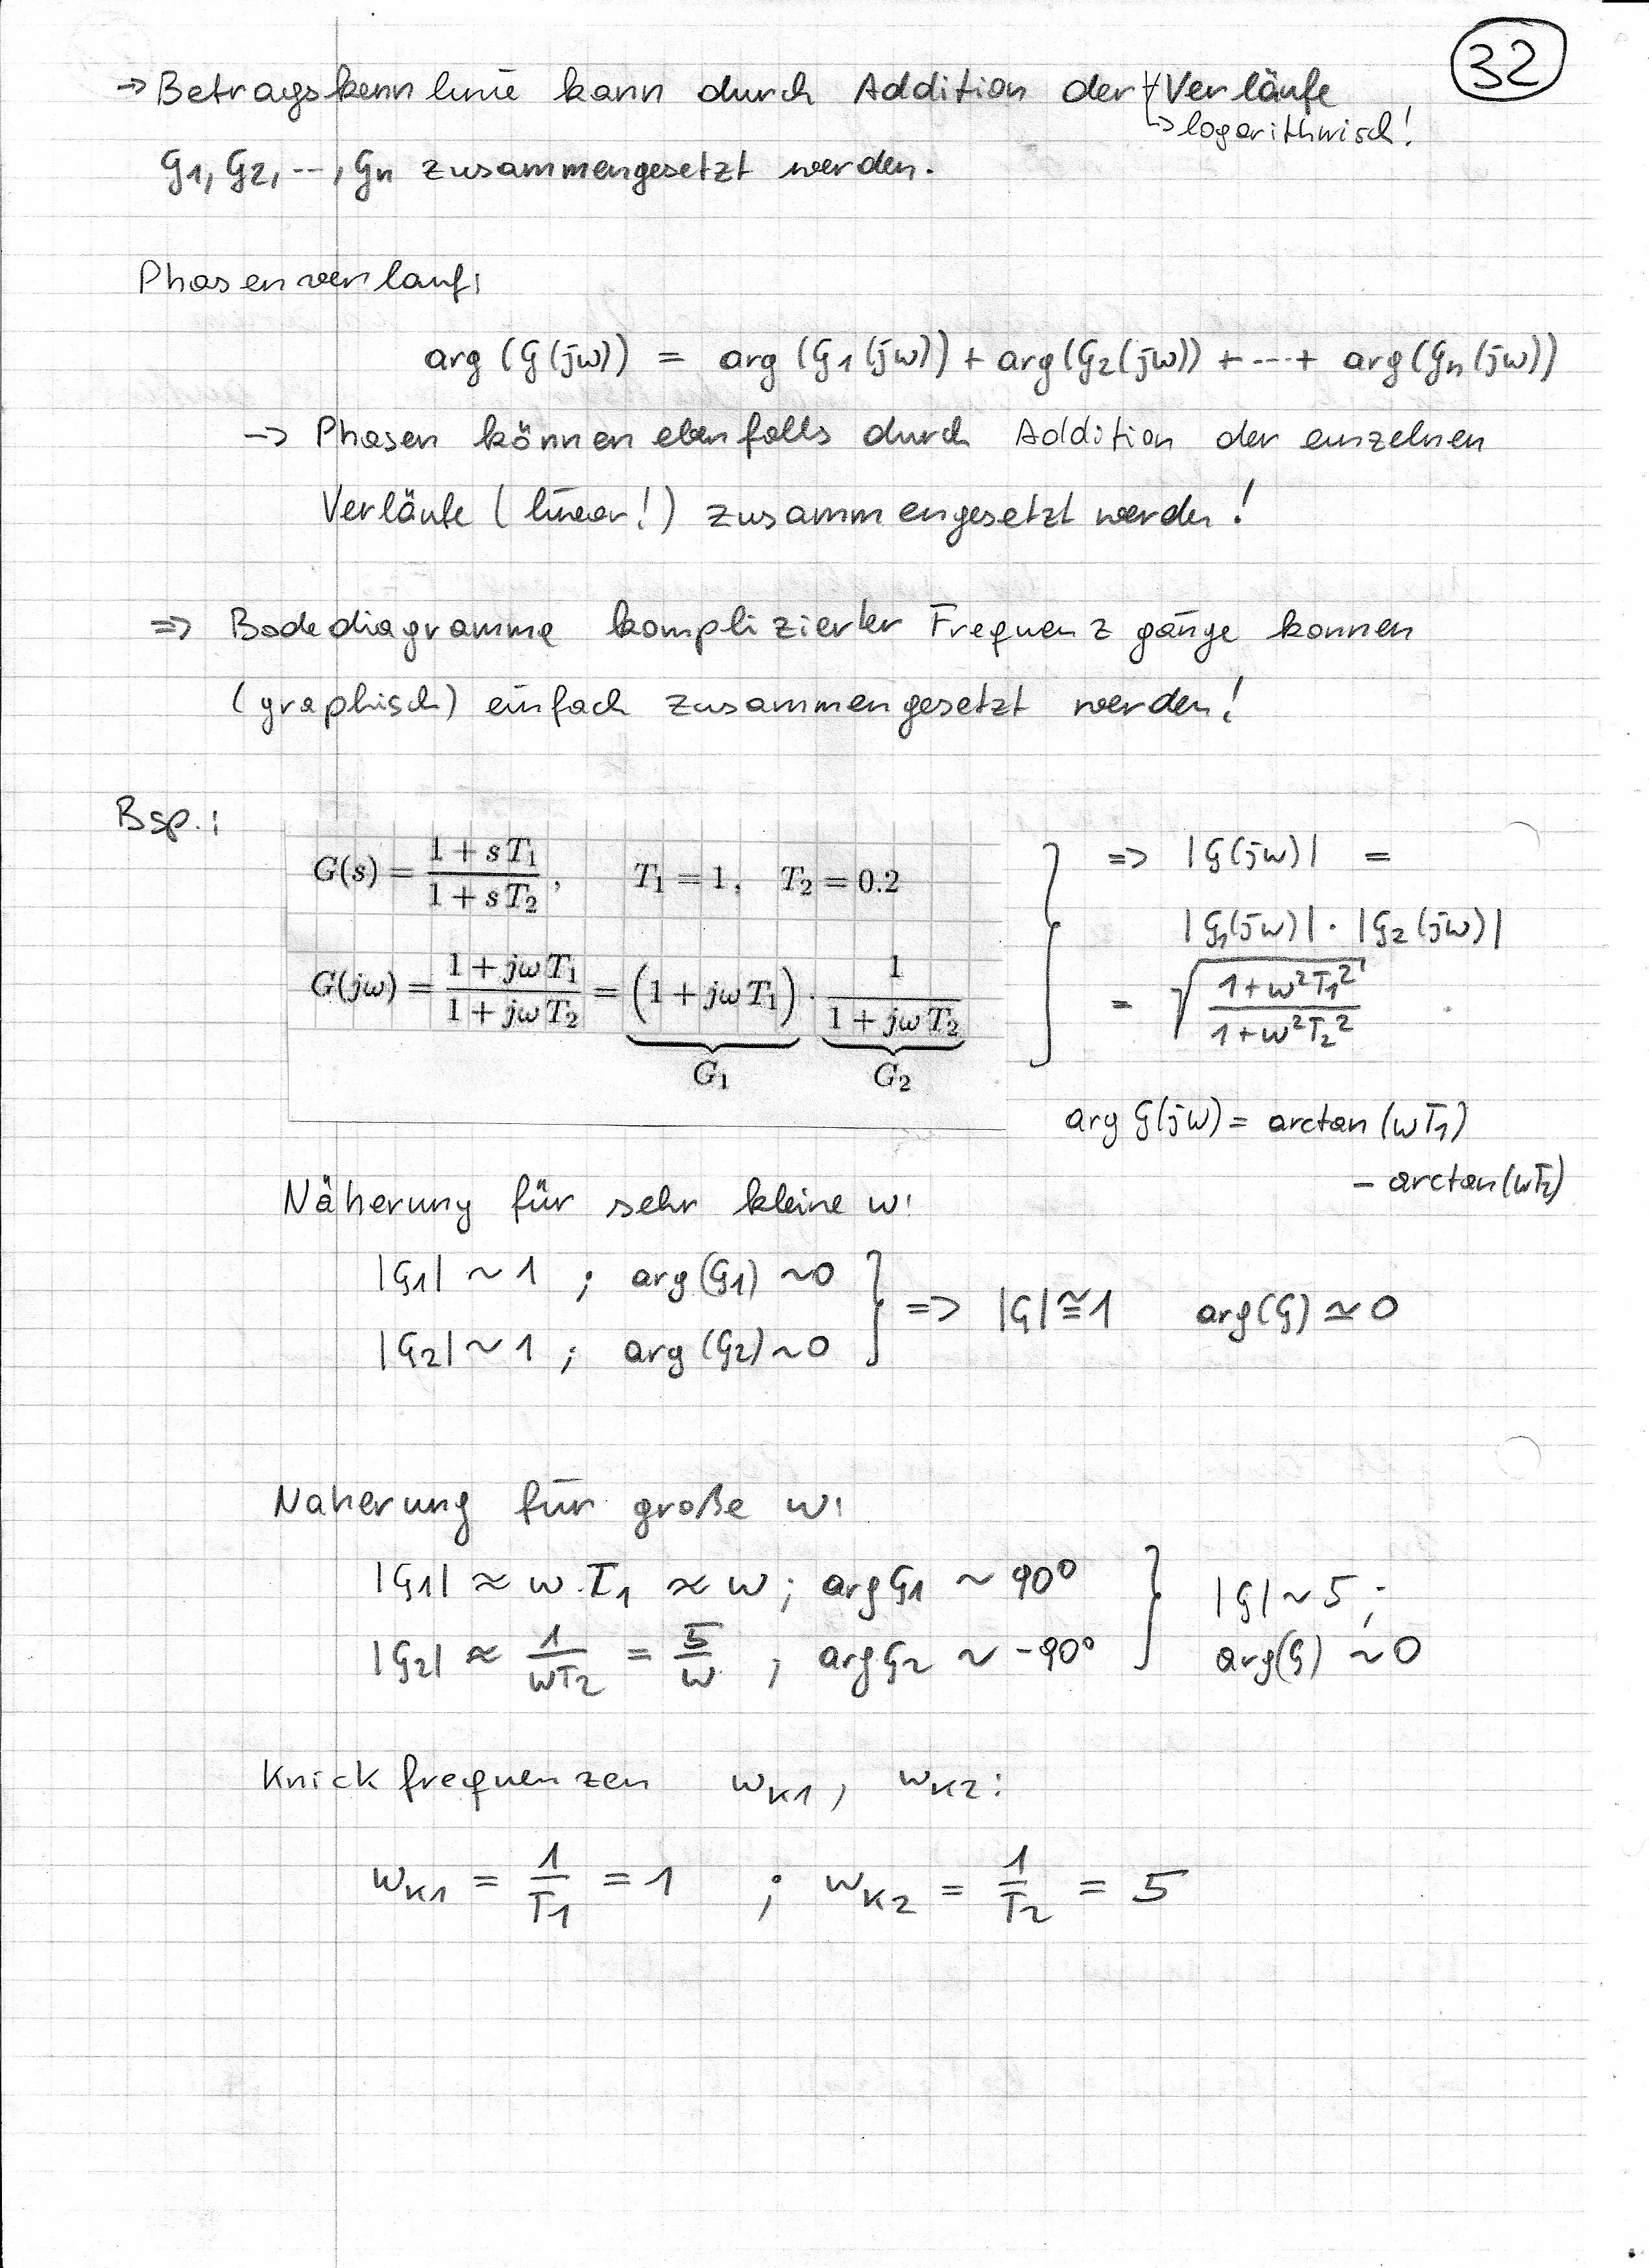 32
→ Betragskennlinie kann durch Addition der Verläufe
↳ logarithmisch!
G1, G2, ---, Gn zusammengesetzt werden.
Phasenverlauf:
arg (G(jω)) = arg (G1(jω)) + arg(G2(jω)) + ---+ arg(Gn(jω))
→ Phasen können ebenfalls durch Addition der einzelnen
Verläufe (linear!) zusammengesetzt werden!
⇒ Bodediagramme komplizierter Frequenzgänge konnen
(graphisch) einfach zusammengesetzt werden!
Bsp.:
G(s) = (1 + sT1)/(1 + sT2), T1 = 1, T2 = 0.2
G(jω) = (1 + jωT1)/(1 + jωT2) = (1 + jωT1) · 1/(1 + jωT2)
G1 G2
⇒ |G(jω)| =
|G1(jω)| · |G2(jω)|
= √((1+ω²T1²)/(1+ω²T2²))
arg G(jω) = arctan (ωT1)
- arctan(ωT2)
Näherung für sehr kleine ω:
|G1| ~ 1 ; arg(G1) ~0
|G2| ~ 1 ; arg (G2) ~0
⇒ |G| ≅ 1 arg(G) ≃ 0
Naherung für große ω:
|G1| ≈ ω·T1 ≈ ω ; arg G1 ~ 90°
|G2| ≈ 1/(ωT2) = 5/ω ; arg G2 ~ -90°
|G| ~ 5 ;
arg(G) ~0
Knickfrequenzen ωK1, ωK2:
ωK1 = 1/T1 = 1 ; ωK2 = 1/T2 = 5